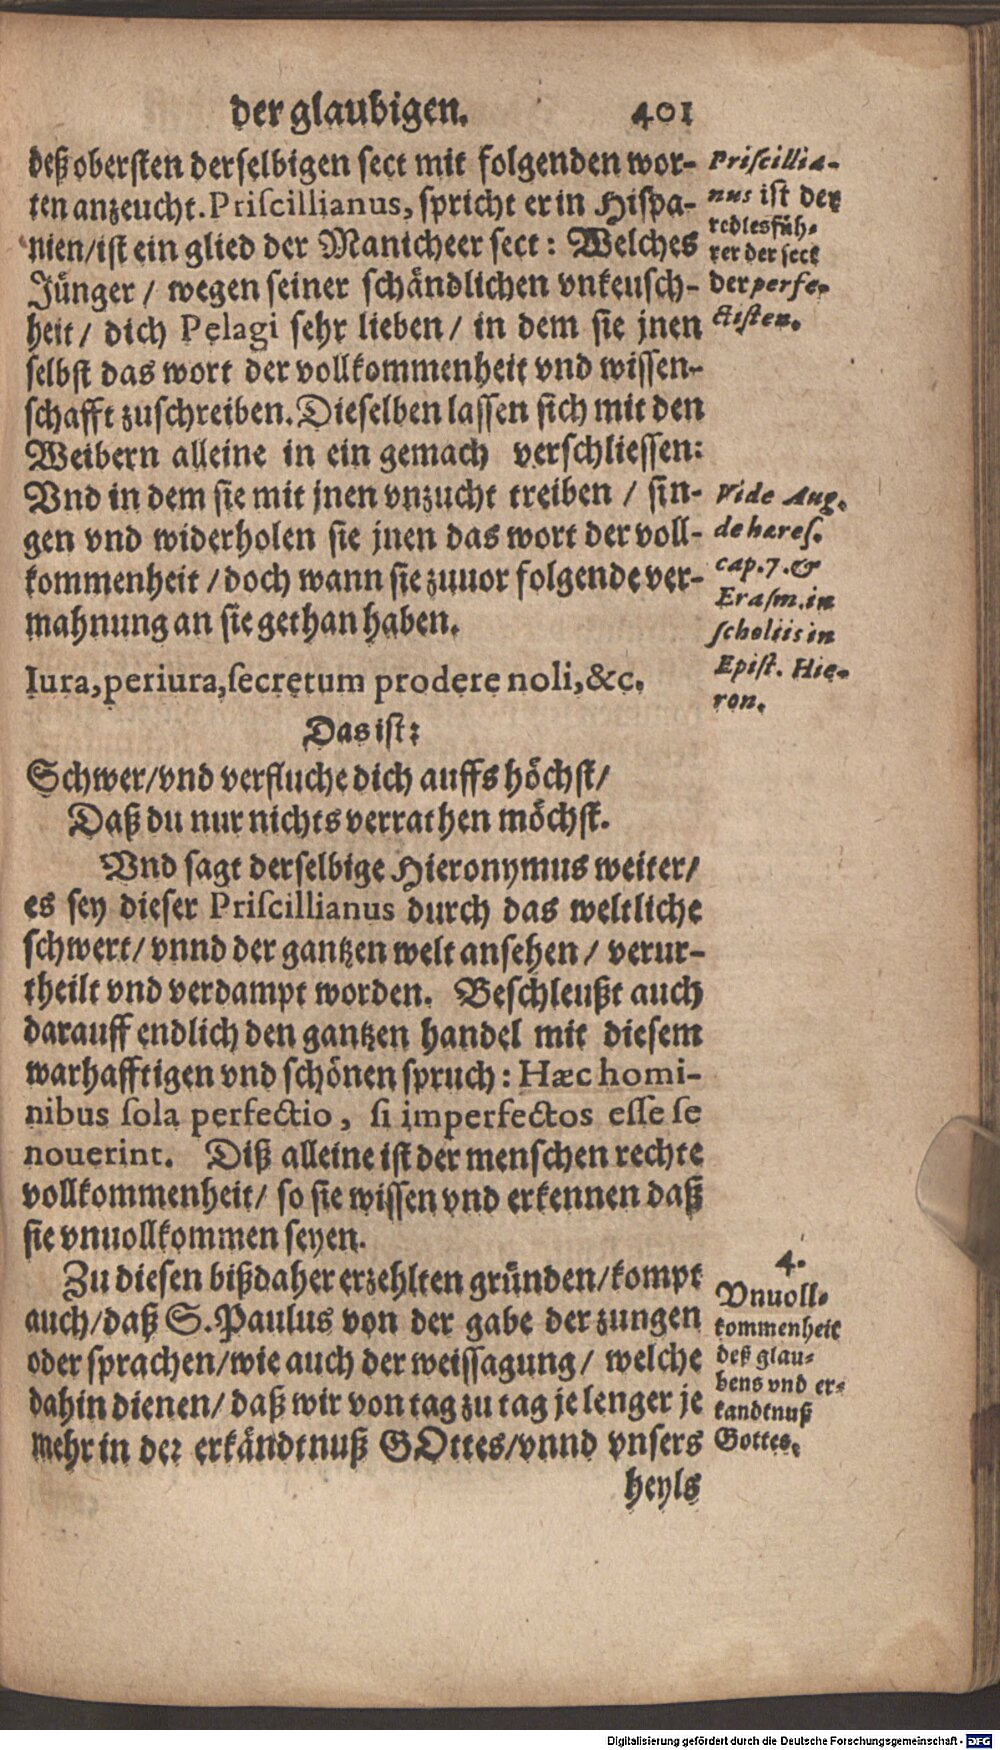 der glaubigen. 401
deß obersten derselbigen sect mit folgenden wor-
ten anzeucht. Priscillianus, spricht er in Hispa-
nien/ist ein glied der Manicheer sect: Welches
Jünger / wegen seiner schändlichen vnkeusch-
heit/ dich Pelagi sehr lieben/ in dem sie jnen
selbst das wort der vollkommenheit vnd wissen-
schafft zuschreiben. Dieselben lassen sich mit den
Weibern alleine in ein gemach verschliessen:
Vnd in dem sie mit jnen vnzucht treiben / sin-
gen vnd widerholen sie jnen das wort der voll-
kommenheit /doch wann sie zuuor folgende ver-
mahnung an sie gethan haben.
Iura, periura, secretum prodere noli, &c.
Das ist:
Schwer/vnd verfluche dich auffs höchst/
Daß du nur nichts verrathen möchst.
Vnd sagt derselbige Hieronymus weiter/
es sey dieser Priscillianus durch das weltliche
schwert/ vnnd der gantzen welt ansehen/ verur-
theilt vnd verdampt worden. Beschleußt auch
darauff endlich den gantzen handel mit diesem
warhafftigen vnd schönen spruch: Hæc homi-
nibus sola perfectio, si imperfectos esse se
nouerint. Diß alleine ist der menschen rechte
vollkommenheit/ so sie wissen vnd erkennen daß
sie vnuollkommen seyen.
Zu diesen bißdaher erzehlten gründen/kompt
auch/daß S. Paulus von der gabe der zungen
oder sprachen/wie auch der weissagung/ welche
dahin dienen/ daß wir von tag zu tag je lenger je
mehr in der erkändtnuß GOttes/vnnd vnsers
heyls
Priscillia-
nus ist der
redlesfüh-
rer der sect
der perfe-
ctisten.
Vide Aug.
de hæres.
cap. 7. &
Erasm. in
scholiis in
Epist. Hie-
ron.
4.
Vnuoll-
kommenheit
deß glau-
bens vnd er-
kandtnuß
Gottes.
Digitalisierung gefördert durch die Deutsche Forschungsgemeinschaft - DFG